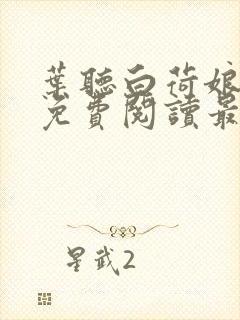 葉聽白荷娘
免費閱讀最
星武2